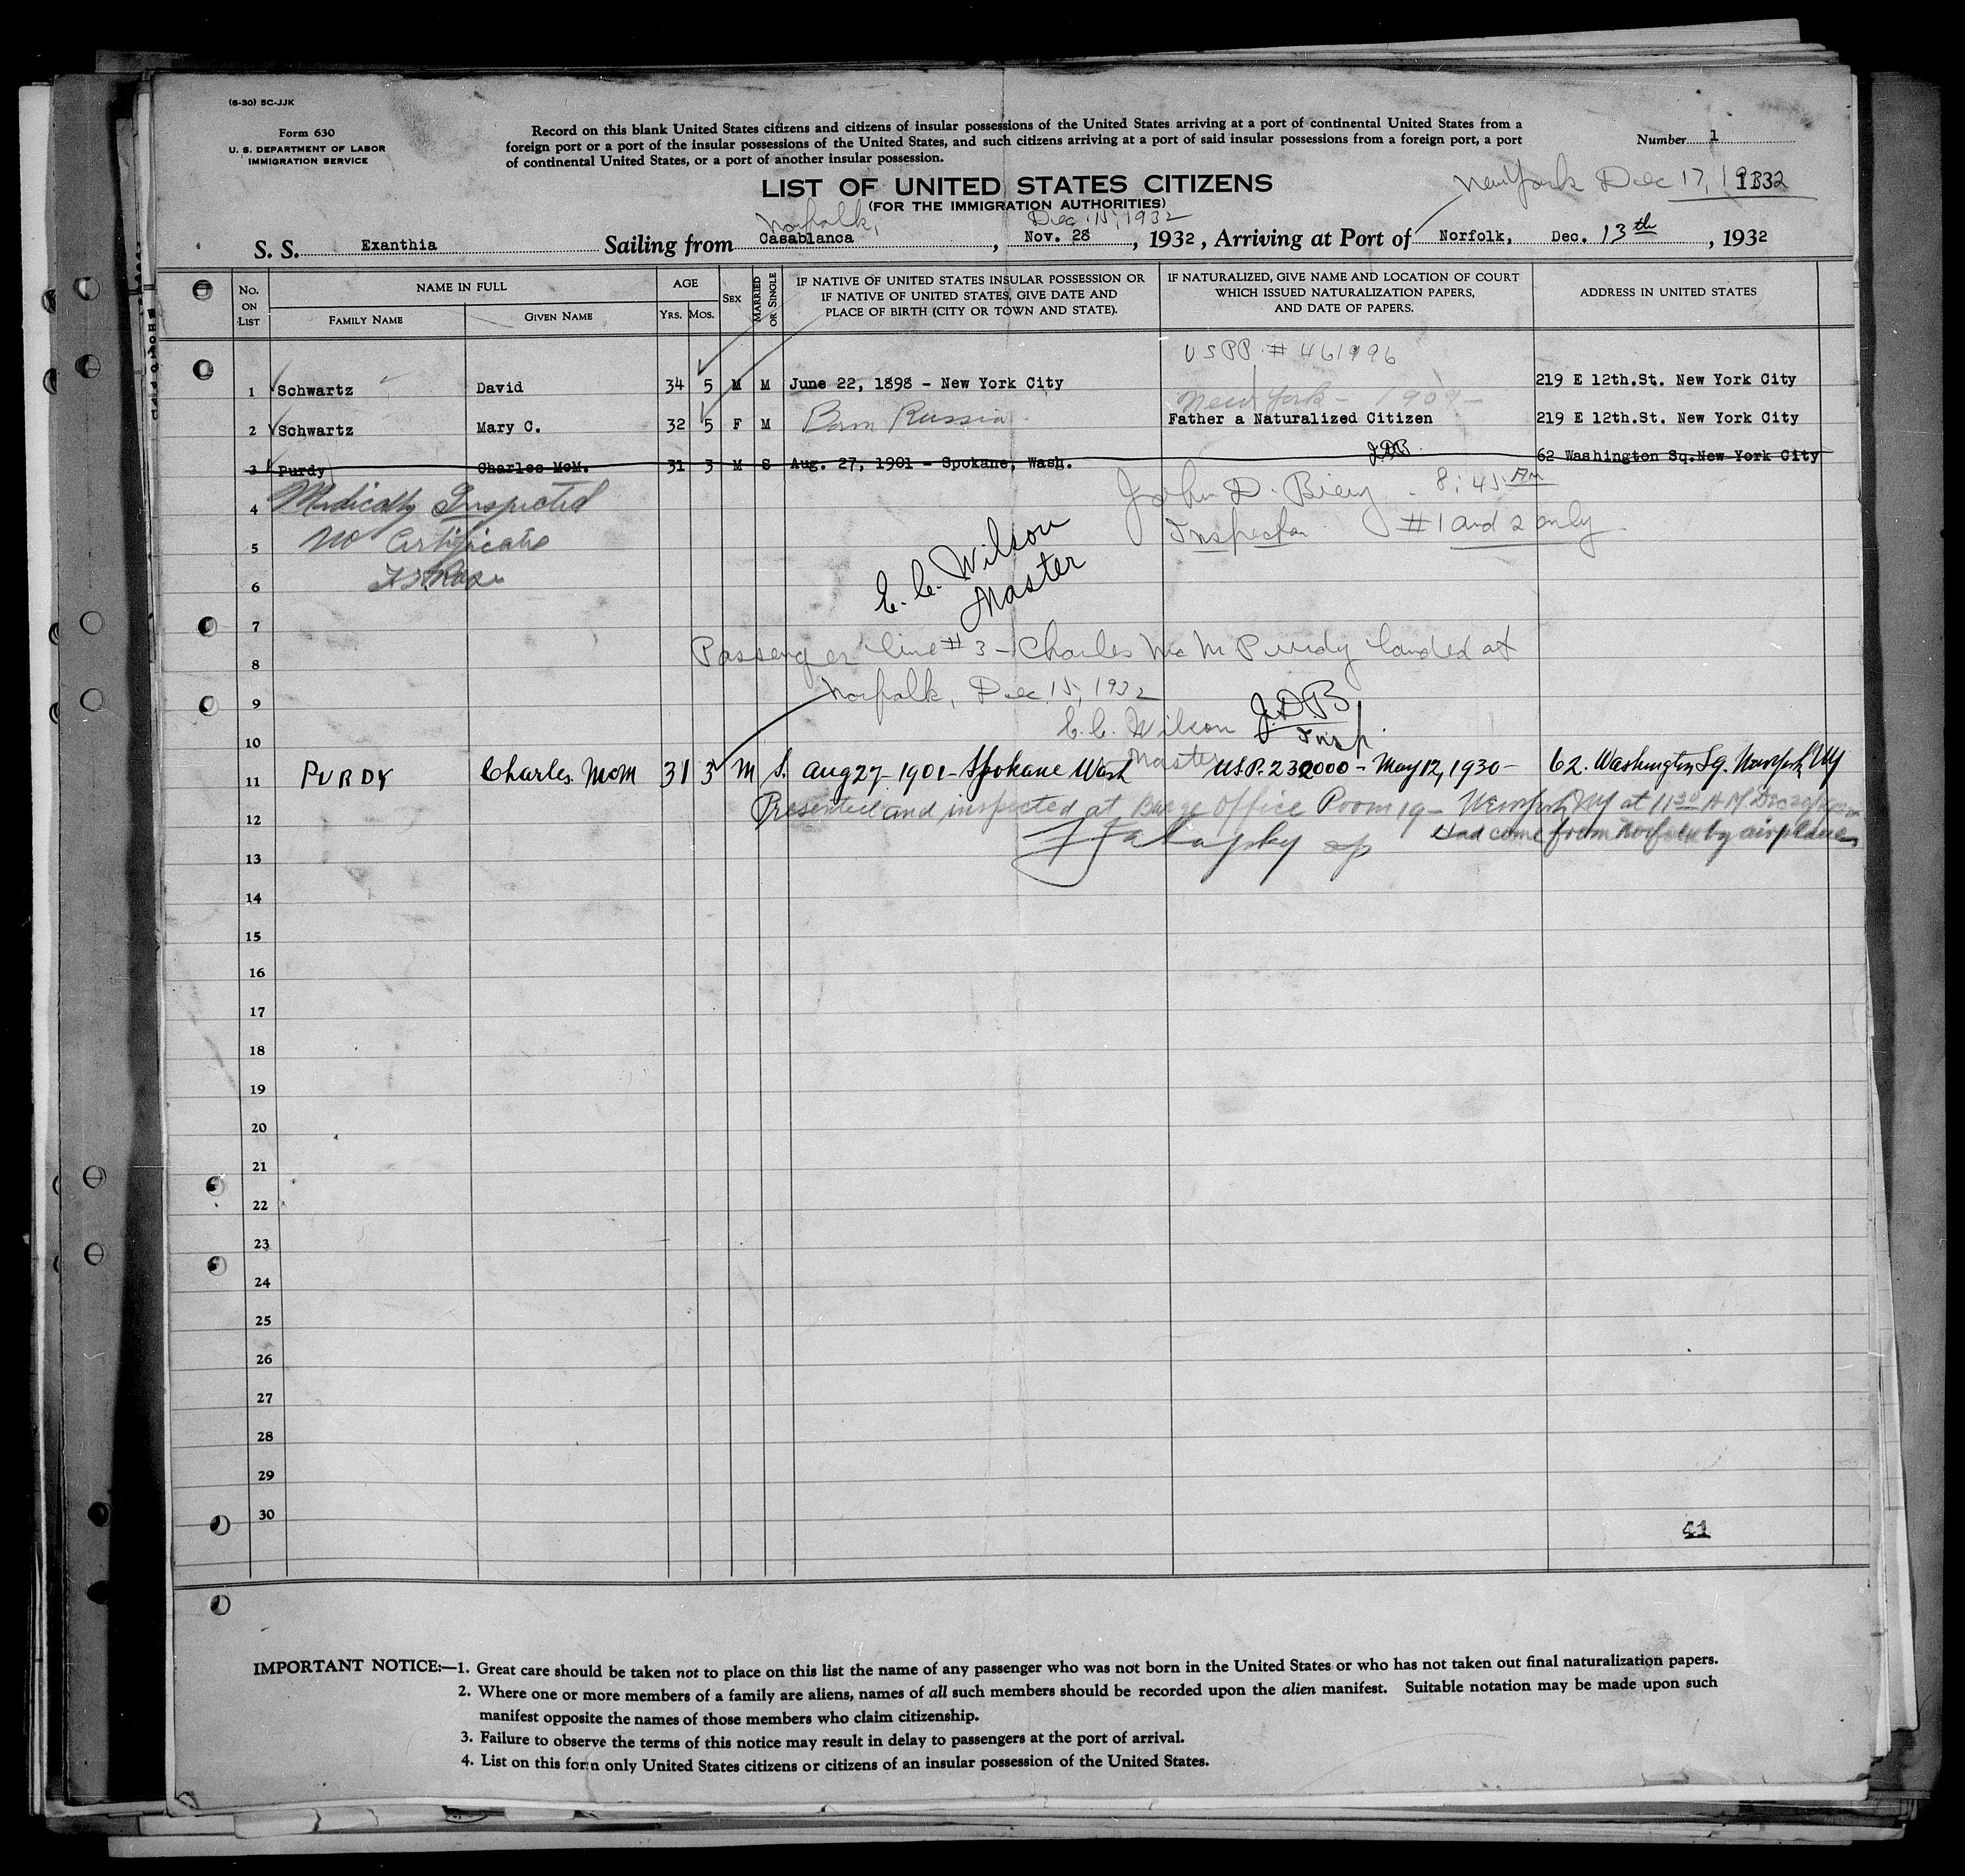 (6-30) 5C-JJK
Form 630
U. S. DEPARTMENT OF LABOR
IMMIGRATION SERVICE
Record on this blank United States citizens and citizens of insular possessions of the United States arriving at a port of continental United States from a
foreign port or a port of the insular possessions of the United States, and such citizens arriving at a port of said insular possessions from a foreign port, a port
of continental United States, or a port of another insular possession.
Number 1
LIST OF UNITED STATES CITIZENS
(FOR THE IMMIGRATION AUTHORITIES)
New York Dec 17, 1932
Norfolk, Dec. 15, 1932
S. S. Exanthia Sailing from Casablanca, Nov. 28, 1932, Arriving at Port of Norfolk, Dec. 13th, 1932
No. ON LIST NAME IN FULL AGE SEX MARRIED OR SINGLE IF NATIVE OF UNITED STATES INSULAR POSSESSION OR IF NATIVE OF UNITED STATES, GIVE DATE AND PLACE OF BIRTH (CITY OR TOWN AND STATE). IF NATURALIZED, GIVE NAME AND LOCATION OF COURT WHICH ISSUED NATURALIZATION PAPERS, AND DATE OF PAPERS. ADDRESS IN UNITED STATES
FAMILY NAME GIVEN NAME YRS. MOS.
USPP. # 461996
1 Schwartz David 34 5 M M June 22, 1898 - New York City 219 E 12th.St. New York City
New York - 1909 -
2 Schwartz Mary C. 32 5 F M Born Russia Father a Naturalized Citizen 219 E 12th.St. New York City
3 Purdy Charles McM. 31 3 M S Aug. 27, 1901 - Spokane, Wash. J.D.B. 62 Washington Sq.New York City
4 Medically Inspected John D. Biery 8:45 AM
5 No Certificate Inspector #1 and 2 only
6
E. C. Wilson
Master
7
8 Passenger line #3 - Charles Mc M Purdy landed at
9 Norfolk, Dec 15, 1932
E. C. Wilson J.D.B
10 Master Insp.
11 PURDY Charles McM 31 3 M S. Aug 27 - 1901 - Spokane Wash USP. 232000 - May 12, 1930 - 62. Washington Sq. New York NY
12 Presented and inspected at Barge Office Room 19 - New York, NY at 11 30 AM Dec 20
Had come from Norfolk by airplane
13
14
15
16
17
18
19
20
21
22
23
24
25
26
27
28
29
30
41
IMPORTANT NOTICE:—1. Great care should be taken not to place on this list the name of any passenger who was not born in the United States or who has not taken out final naturalization papers.
2. Where one or more members of a family are aliens, names of all such members should be recorded upon the alien manifest. Suitable notation may be made upon such
manifest opposite the names of those members who claim citizenship.
3. Failure to observe the terms of this notice may result in delay to passengers at the port of arrival.
4. List on this form only United States citizens or citizens of an insular possession of the United States.